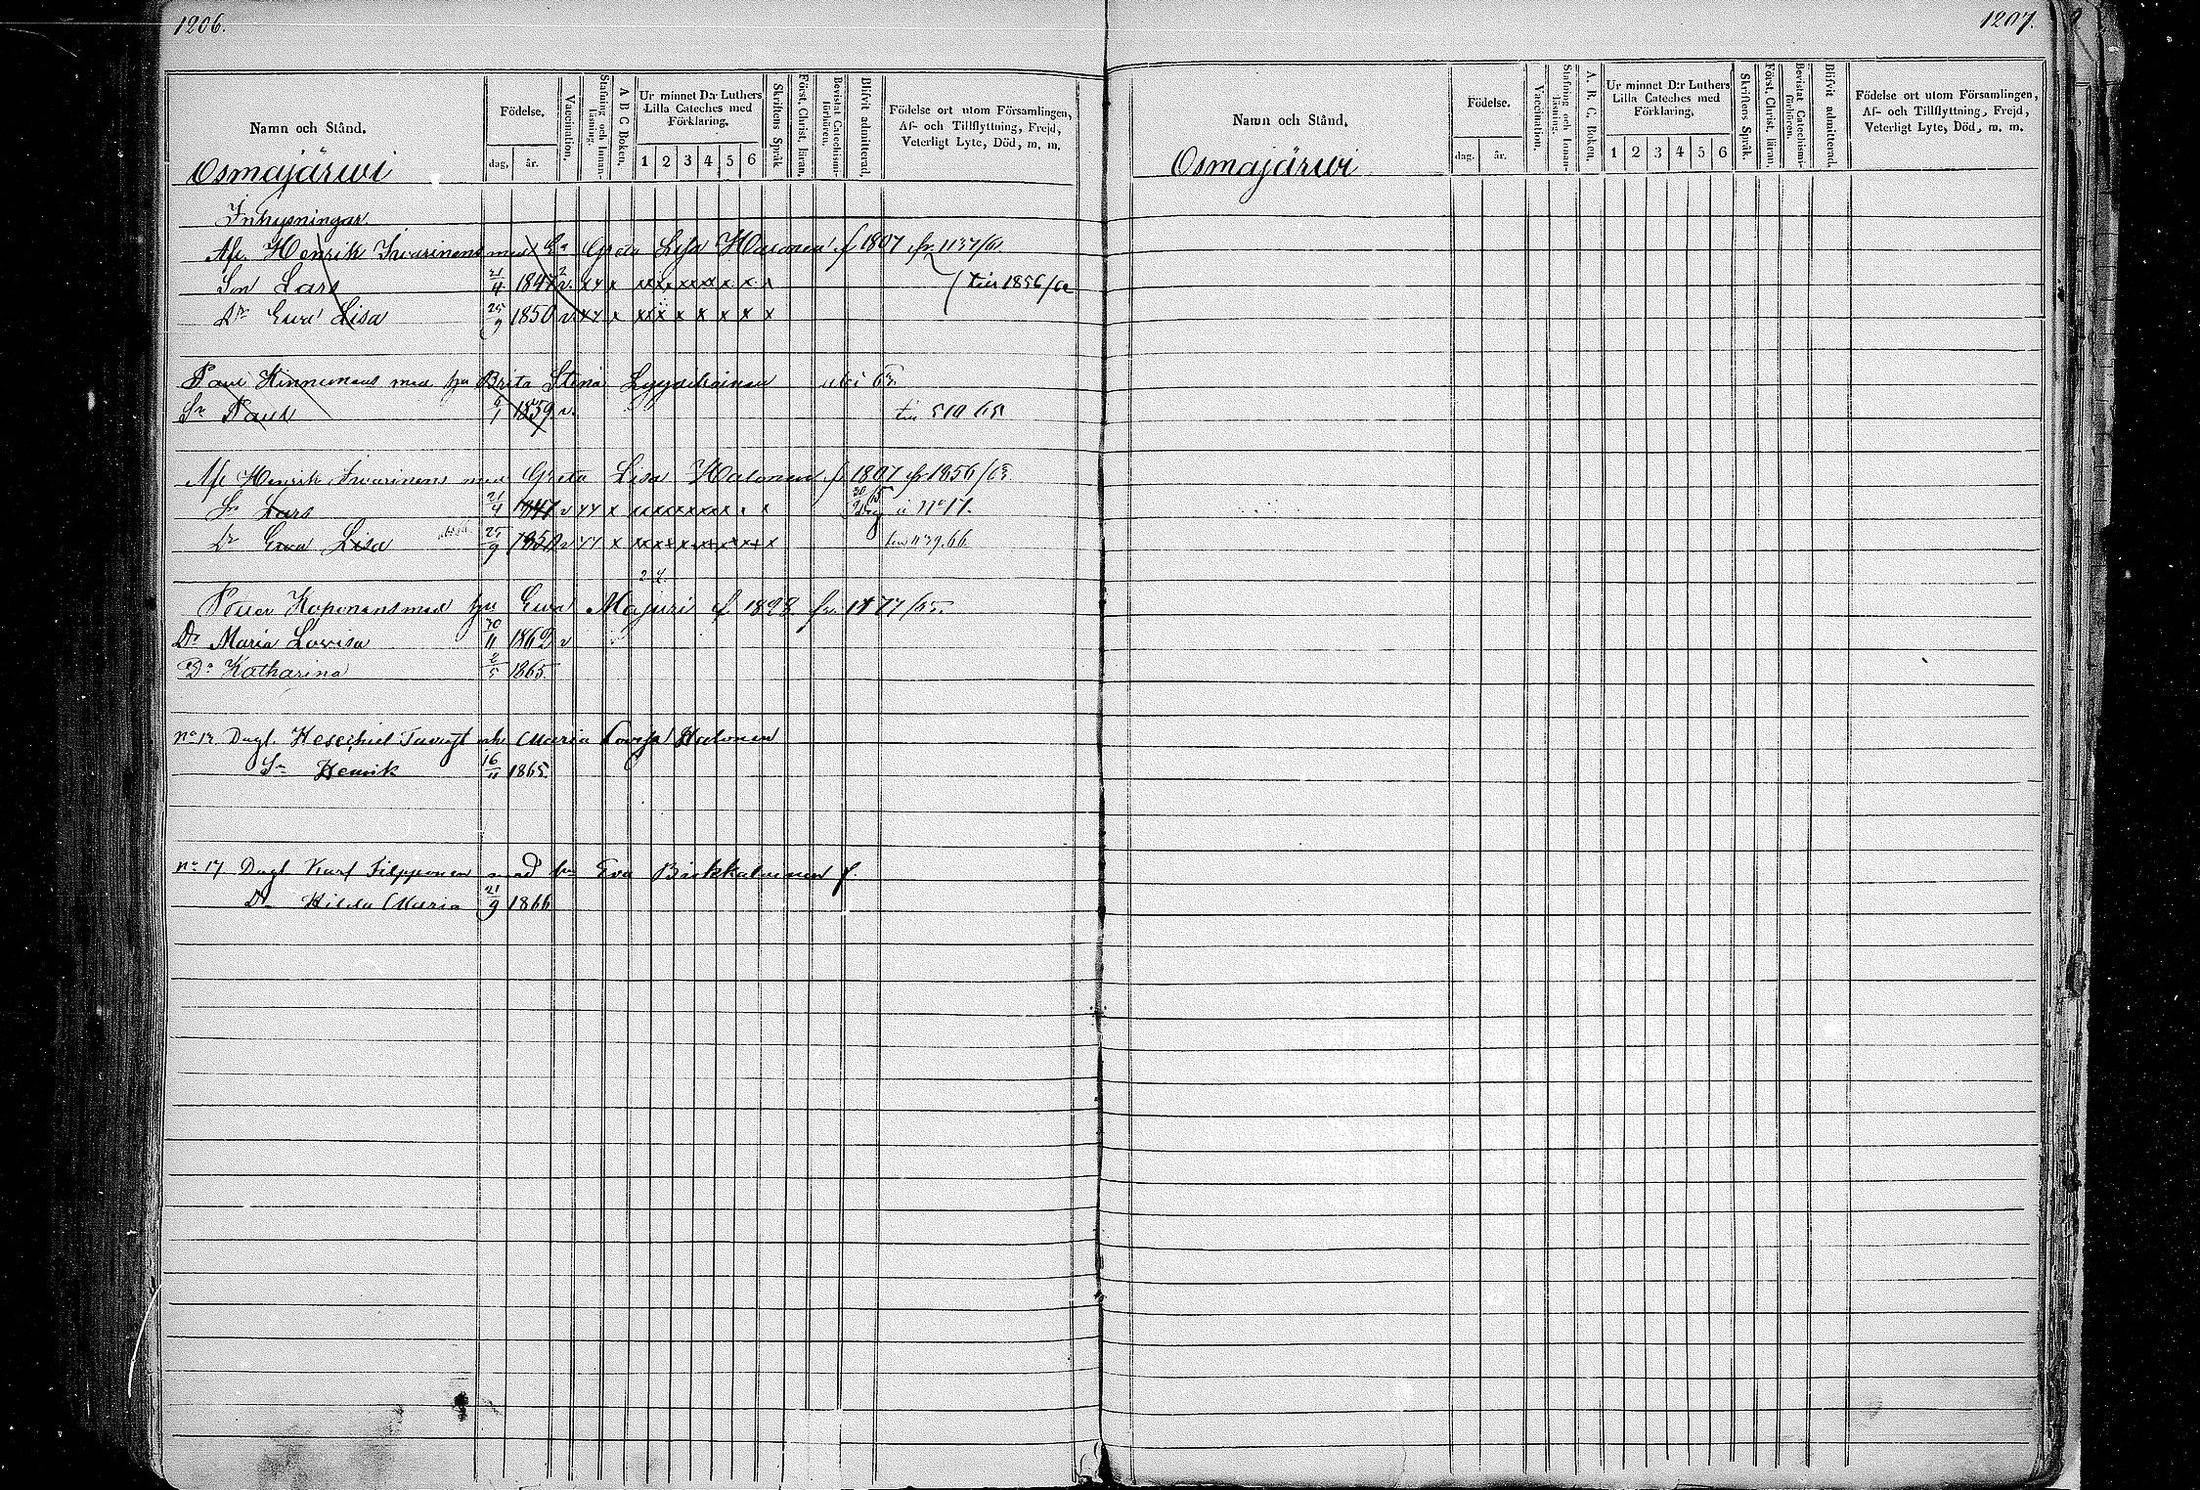 1206.
Namn och Stånd.
Födelse.
dag, år.
Vaccination.
Stafning och Innan-läsning.
A B C Boken.
Ur minnet D:r Luthers Lilla Cateches med Förklaring.
1 2 3 4 5 6
Skriftens Språk
Först. Christ. läran.
Bevistat Catechismi-förhören.
Blifvit admitterad.
Födelse ort utom Församlingen, Af- och Tillflyttning, Frejd, Veterligt Lyte, Död, m. m.
Osmajärwi
Inhysningar.
Afl. Henrik Iwarinens med Ea Greta Lisa Halonen f 1807 fr 1137/61
Son Lars 21/4 1847 v. xx x xxx xxxx x x x
Dr Ewa Lisa 25/9 1850 v xx x xxx x x x x x
till 1856/62
Paul Kinnunens med hu Brita Stina
Sr Paul 6/1 1859 v. till 510 65
Afl Henrik Iwarinens med Greta Lisa Halonen f 1807 fr 1856/63
Sr Lars 21/4 1847 v xx x N:o 17.
Dr Ewa Lisa 25/9 1850 v xx x 66
Petter Koponens med hu Ewa Majuri f. 1828 fr. 1177/65.
Dr Maria Lovisa 30/11 1862 v
Dr Katharina 2/5 1865.
No 12 Dagl. Hesekiel enka Maria Lovisa Halonen
Sn Henrik 16/11 1865.
No 17 Dagl Karl Filpponen med hu Eva f.
Dr Hilda Maria 21/9 1866
1207.
Namn och Stånd.
Födelse.
dag. år.
Vaccination.
Stafning och Innan-läsning.
A. B. C. Boken.
Ur minnet D:r Luthers Lilla Cateches med Förklaring.
1 2 3 4 5 6
Skriftens Språk.
Först. Christ. läran.
Bevistat Catechismi-förhören.
Blifvit admitterad.
Födelse ort utom Församlingen, Af- och Tillflyttning, Frejd, Veterligt Lyte, Död, m. m.
Osmajärwi